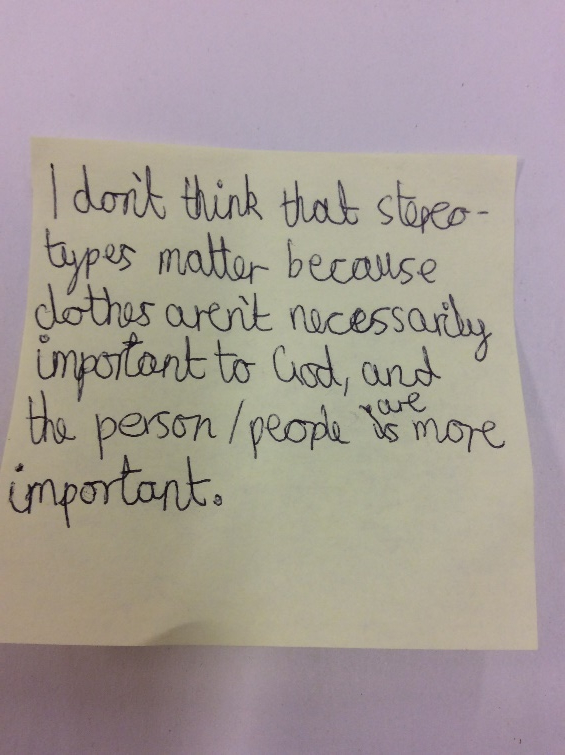 I don't think that stereo-
types matter because
clothes aren't necessarily
important to God, and
the person/people is are more
important.